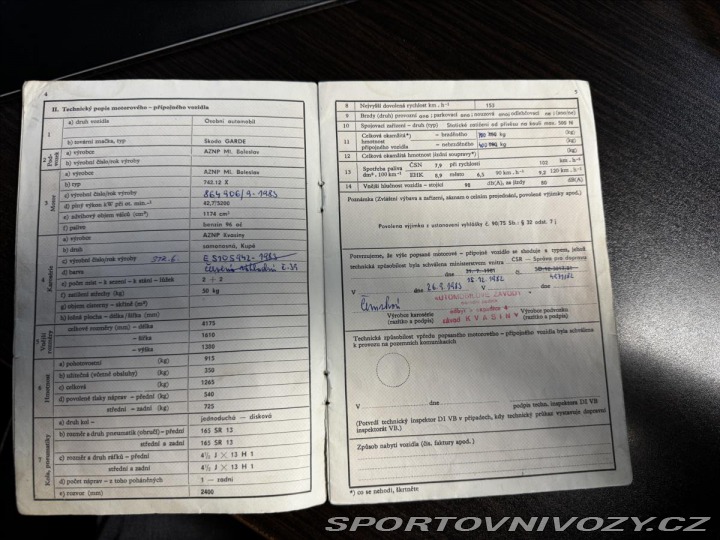 4
II. Technický popis motorového – přípojného vozidla
1
a) druh vozidla Osobní automobil
b) tovární značka, typ Škoda GARDE
2 Podvozek
a) výrobce AZNP Ml. Boleslav
b) výrobní číslo/rok výroby
3 Motor
a) výrobce AZNP Ml. Boleslav
b) typ 742.12 X
c) výrobní číslo/rok výroby 864906/9-1983
d) plný výkon kW při ot. min.⁻¹ 42,7/5200
e) zdvihový objem válců (cm³) 1174 cm³
f) palivo benzin 96 oč
4 Karosérie
a) výrobce AZNP Kvasiny
b) druh samonosná, Kupé
c) výrobní číslo/rok výroby
d) barva
e) počet míst – k sezení – k stání – lůžek 2 + 2
f) zatížení střechy (kg) 50 kg
g) objem cisterny – skříně (m³)
h) ložná plocha – délka/šířka (mm)
5 Vnější rozměry
celkové rozměry (mm) – délka 4175
– šířka 1610
– výška 1300
6 Hmotnost
a) pohotovostní (kg) 915
b) užitečná (včetně obsluhy) (kg) 350
c) celková (kg) 1265
d) povolené tlaky náprav – přední (kg) 540
střední – zadní (kg) 725
7 Kola, pneumatiky
a) druh kol – jednoduchá – disková
b) rozměr a druh pneumatik (obručí) – přední 165 SR 13
střední a zadní 165 SR 13
c) rozměr a druh ráfků – přední 4½ J X 13 H 1
střední a zadní 4½ J X 13 H 1
d) počet náprav – z toho poháněných 1 – zadní
e) rozvor (mm) 2400
5
8 Nejvyšší dovolená rychlost km . h⁻¹ 153
9 Brzdy (druh) provozní ano; parkovací ano; nouzová ano; odlehčovací ne;
10 Spojovací zařízení – druh (typ) Statické zatížení od přívěsu na kouli max. 500 N
11 Celková okamžitá*) hmotnost přípojného vozidla
– brzděného kg (kg)
– nebrzděného kg (kg)
12 Celková okamžitá hmotnost jízdní soupravy*) (kg)
13 Spotřeba paliva dm³ . 100 km⁻¹
ČSN 7,9 při rychlosti 102 km . h⁻¹
EHK 8,9 měsem 6,5 90 km . h⁻¹ 9,2 120 km . h⁻¹
14 Vnější hlučnost vozidla – stojící dB(A), za jízdy 80 dB(A)
Poznámka (Zvláštní výbava a zařízení, záznam o celním projednání, povolené výjimky apod.)
Povolena výjimka z ustanovení vyhlášky č. 90/75 Sb.: § 32 odst. 7 j
Potvrzujeme, že výše popsané motorové – přípojné vozidlo se shoduje s typem, jehož
technická způsobilost byla schválena ministerstvem vnitra ČSR – Správou pro dopravu
dne 15.12.1982 č.
V dne 26.9.1983 V dne
AUTOMOBILOVÉ ZÁVODY
závod KVASINY
Výrobce karosérie Výrobce podvozku
(razítko a podpis) (razítko a podpis)
Technická způsobilost výše popsaného motorového – přípojného vozidla byla schválena
k provozu na pozemních komunikacích
V dne
podpis techn. inspektora DI VB
(Potvrdí technický inspektor DI VB v případech, kdy technický průkaz vystavuje dopravní
inspektorát VB.)
Způsob nabytí vozidla (čís. faktury apod.)
*) co se nehodí, škrtněte
SPORTOVNIVOZY.CZ